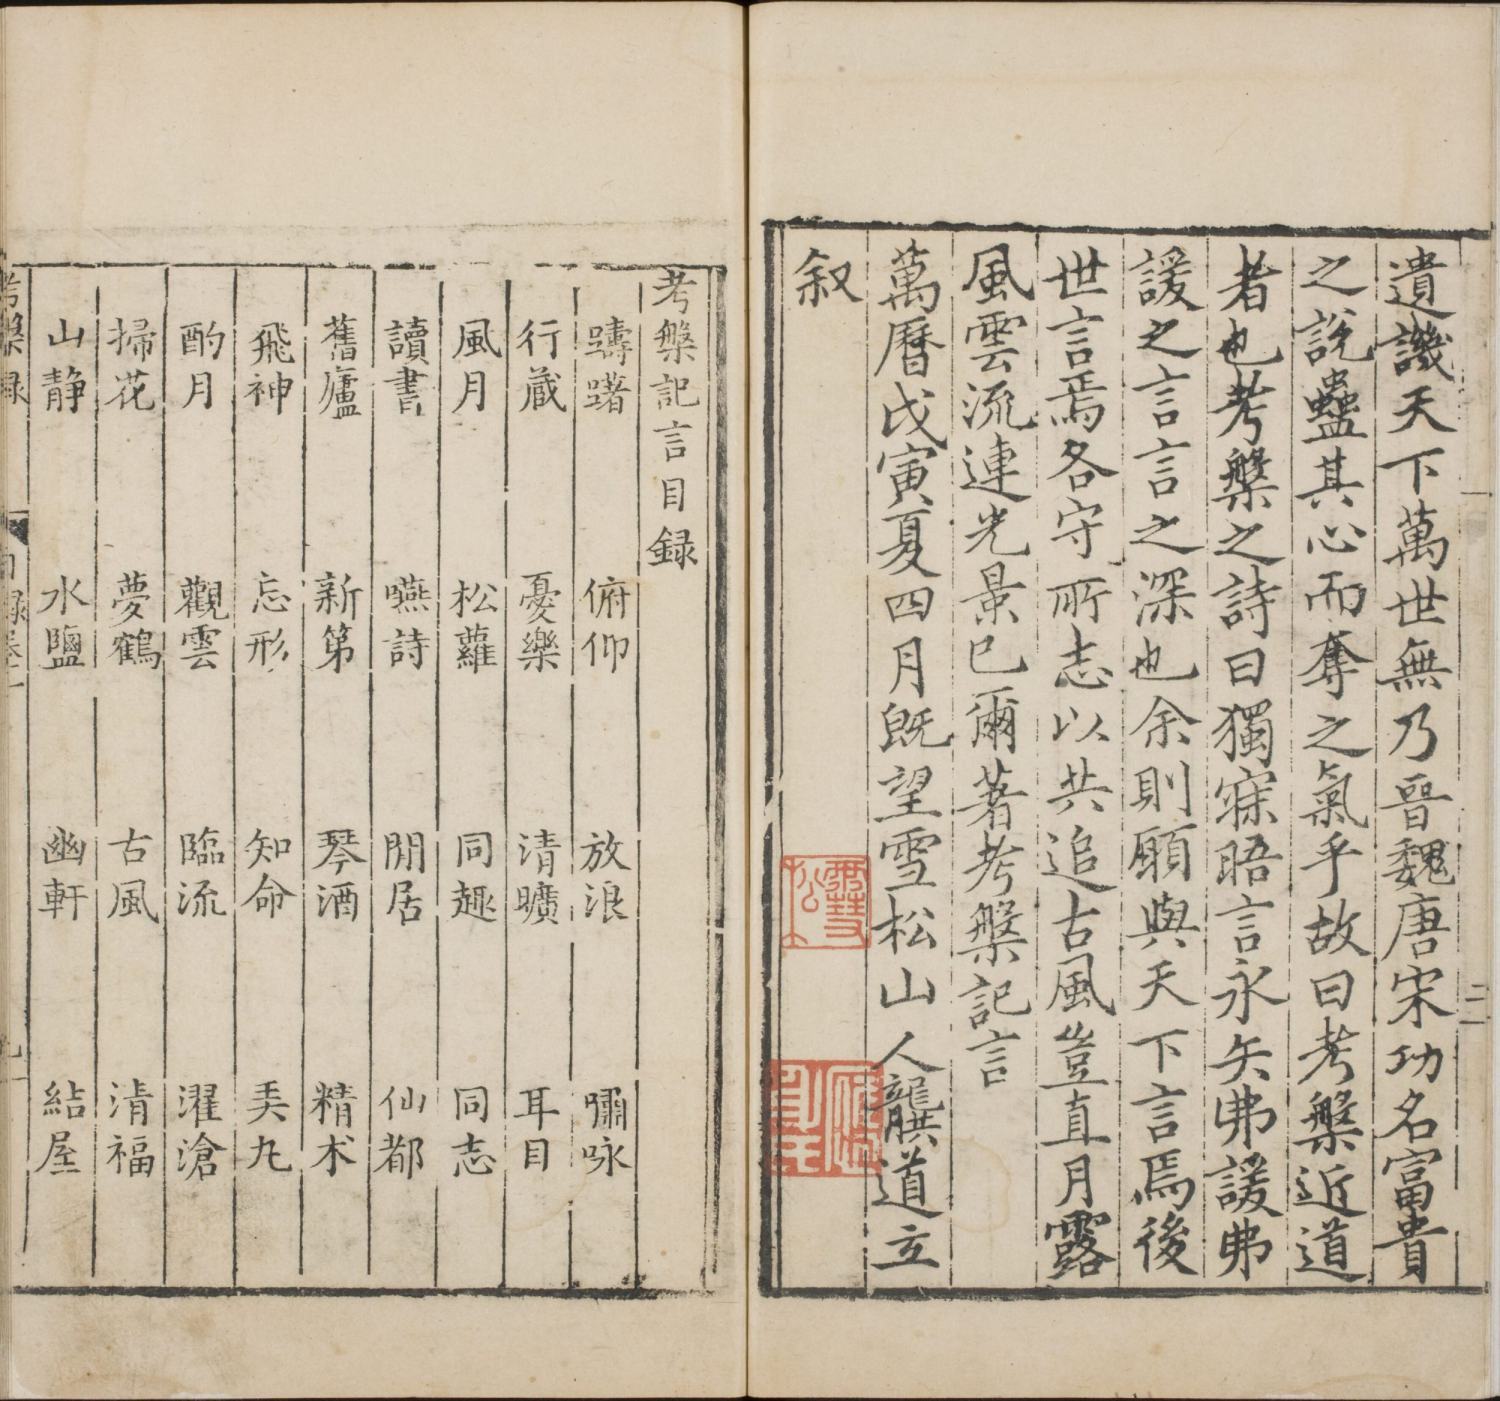 遺譏天下萬世無乃晉魏唐宋功名富貴
之說蠱其心而奪之氣乎故曰考槃近道
者也考槃之詩曰獨寐晤言永矢弗諼弗
諼之言言之深也余則願與天下言焉後
世言焉各守所志以共追古風豈直月露
風雲流連光景已爾著考槃記言
萬曆戊寅夏四月既望雪松山人龔道立
叙
雪松
考槃記言目録
躊躇 俯仰 放浪 嘯咏
行藏 憂樂 清曠 耳目
風月 松蘿 同趣 同志
讀書 嚥詩 閒居 仙都
舊廬 新第 琴酒 精术
飛神 忘形 知命 弄丸
酌月 觀雲 臨流 濯滄
掃花 夢鶴 古風 清福
山静 水鹽 幽軒 結屋
考槃録 目録卷